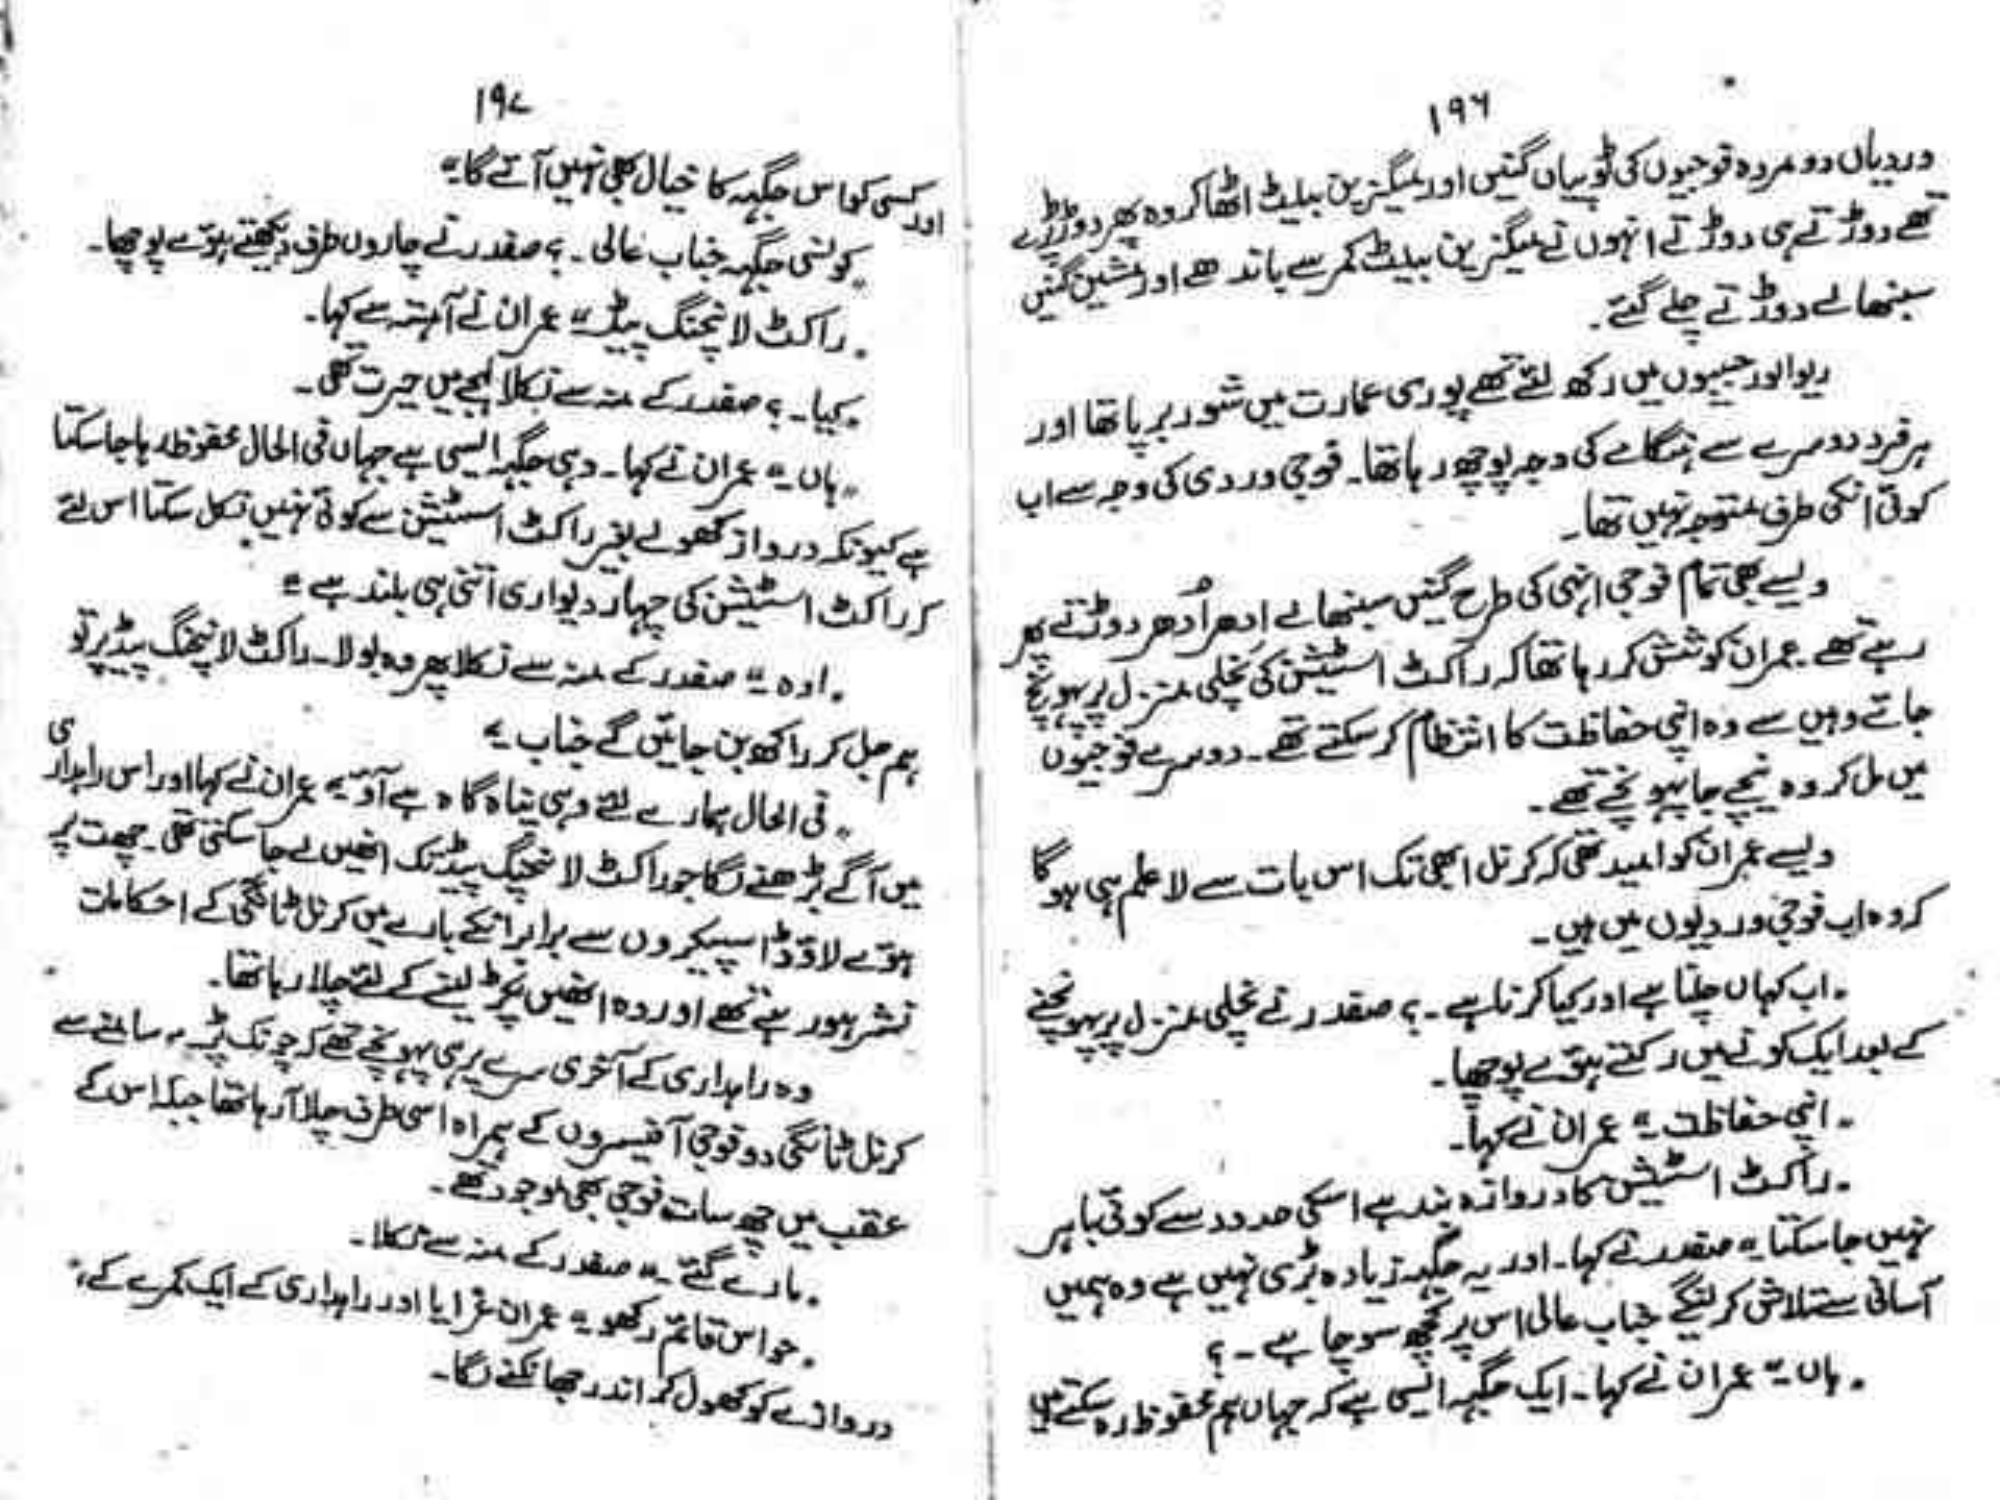 ۱۹۶
وردیاں دو مردہ فوجیوں کی ٹوپیاں گنیں اور میگزین بیلٹ اٹھا کر وہ پھر دوڑ پڑے
تھے دوڑتے ہی دوڑتے انہوں نے میگزین بیلٹ کمر سے باندھے اور مشین گنیں
سنبھالے دوڑتے چلے گئے۔
ریوالور جیبوں میں رکھ لئے تھے پوری عمارت میں شور برپا تھا اور
ہر فرد دوسرے سے ہنگامے کی وجہ پوچھ رہا تھا۔ فوجی وردی کی وجہ سے اب
کوئی انکی طرف متوجہ نہیں تھا۔
ویسے بھی تمام فوجی انہی کی طرح گنیں سنبھالے اِدھر اُدھر دوڑتے پھر
رہے تھے۔ عمران کوشش کر رہا تھا کہ راکٹ اسٹیشن کی نچلی منزل پر پہونچ
جائے وہیں سے وہ اپنی حفاظت کا انتظام کر سکتے تھے۔ دوسرے فوجیوں
میں مل کر وہ نیچے جا پہونچے تھے۔
ویسے عمران کو امید تھی کہ کرنل ابھی تک اس بات سے لاعلم ہی ہوگا
کہ وہ اب فوجی وردیوں میں ہیں۔
۔ اب کہاں چلنا ہے اور کیا کرنا ہے۔ ؟ صفدر نے نچلی منزل پر پہونچنے
کے بعد ایک کونے میں رکتے ہوئے پوچھا۔
۔ اپنی حفاظت۔" عمران نے کہا۔
۔ راکٹ اسٹیشن کا دروازہ بند ہے اسکی حدود سے کوئی باہر
نہیں جا سکتا۔" صفدر نے کہا۔ اور یہ جگہہ زیادہ بڑی نہیں ہے وہ ہمیں
آسانی سے تلاش کر لینگے جناب عالی اس پر کچھ سوچا ہے۔ ؟
۔ ہاں۔" عمران نے کہا۔ ایک جگہہ ایسی ہے کہ جہاں ہم محفوظ رہ سکتے ہیں
۱۹۷
اور کسی کو اس جگہہ کا خیال بھی نہیں آئے گا۔"
"کونسی جگہہ جناب عالی۔ ؟ صفدر نے چاروں طرف دیکھتے ہوئے پوچھا۔
۔ راکٹ لانچنگ پیڈ" عمران نے آہستہ سے کہا۔
۔ کیا۔ ؟ صفدر کے منہ سے نکلا لہجے میں حیرت تھی۔
"ہاں۔" عمران نے کہا۔ وہی جگہہ ایسی ہے جہاں فی الحال محفوظ رہا جا سکتا
ہے کیونکہ درواز کھولے بغیر راکٹ اسٹیشن سے کوئی نہیں نکل سکتا اس لئے
کہ راکٹ اسٹیشن کی چہار دیواری اتنی ہی بلند ہے"
۔ اوہ۔" صفدر کے منہ سے نکلا پھر وہ بولا۔ راکٹ لانچنگ پیڈ پر تو
ہم جل کر راکھ بن جائیں گے جناب۔"
"فی الحال ہمارے لئے وہی پناہ گاہ ہے آؤ۔" عمران نے کہا اور اس راہداری
میں آگے بڑھنے لگا جو راکٹ لانچنگ پیڈ تک انھیں لے جا سکتی تھی۔ چھت پر
ہوئے لاؤڈ اسپیکروں سے برابر انکے بارے میں کرنل ٹانگی کے احکامات
نشر ہو رہے تھے اور وہ انھیں پکڑ لینے کے لئے چلا رہا تھا۔
وہ راہداری کے آخری سرے پر ہی پہونچے تھے کہ چونک پڑے۔ سامنے سے
کرنل ٹانگی دو فوجی آفیسروں کے ہمراہ اسی طرف چلا آ رہا تھا جبکہ اس کے
عقب میں چھ سات فوجی بھی موجود تھے۔
۔ مارے گئے۔" صفدر کے منہ سے نکلا۔
۔ حواس قائم رکھو۔" عمران غرایا اور راہداری کے ایک کمرے کے
دروازے کو کھول کر اندر جھانکنے لگا۔